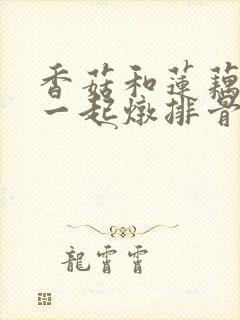 香菇和蓮藕
一起燉排骨
龍霄霄